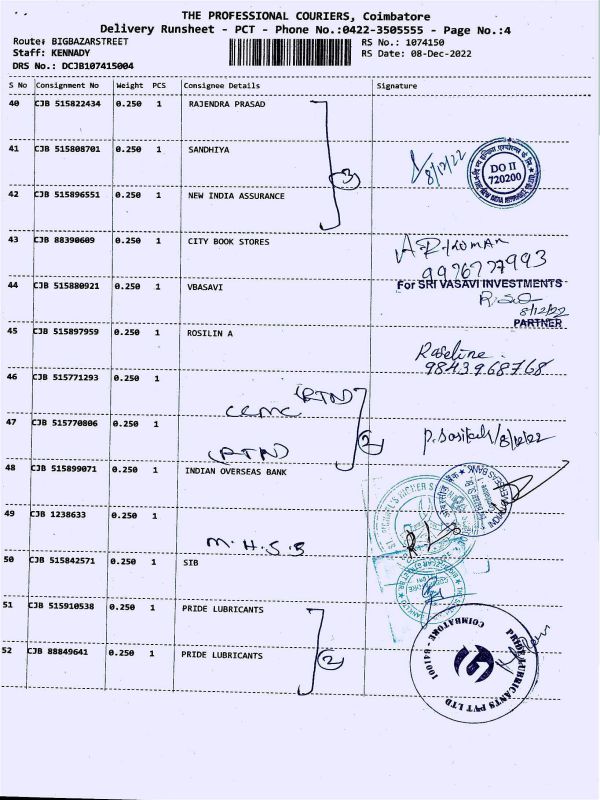 THE PROFESSIONAL COURIERS, Coimbatore
Delivery Runsheet - PCT - Phone No.:0422-3505555 - Page No.:4
Route: BIGBAZARSTREET RS No.: 1074150
Staff: KENNADY RS Date: 08-Dec-2022
DRS No.: DCJB107415004
S No Consignment No Weight PCS Consignee Details Signature
40 CJB 515822434 0.250 1 RAJENDRA PRASAD
41 CJB 515808701 0.250 1 SANDHIYA
8/12/22
DO II
720200
3
42 CJB 515896551 0.250 1 NEW INDIA ASSURANCE
43 CJB 88390609 0.250 1 CITY BOOK STORES
9976777993
44 CJB 515880921 0.250 1 VBASAVI
For SRI VASAVI INVESTMENTS
8/12/22
PARTNER
45 CJB 515897959 0.250 1 ROSILIN A
Roseline
9843968768
46 CJB 515771293 0.250 1
(RTN)
CCMC
47 CJB 515770806 0.250 1
2
8/12/22
(RTN)
48 CJB 515899071 0.250 1 INDIAN OVERSEAS BANK
49 CJB 1238633 0.250 1
M.H.S.S
50 CJB 515842571 0.250 1 SIB
51 CJB 515910538 0.250 1 PRIDE LUBRICANTS
52 CJB 88849641 0.250 1 PRIDE LUBRICANTS
2
PRIDE LUBRICANTS PVT LTD
COIMBATORE - 641001